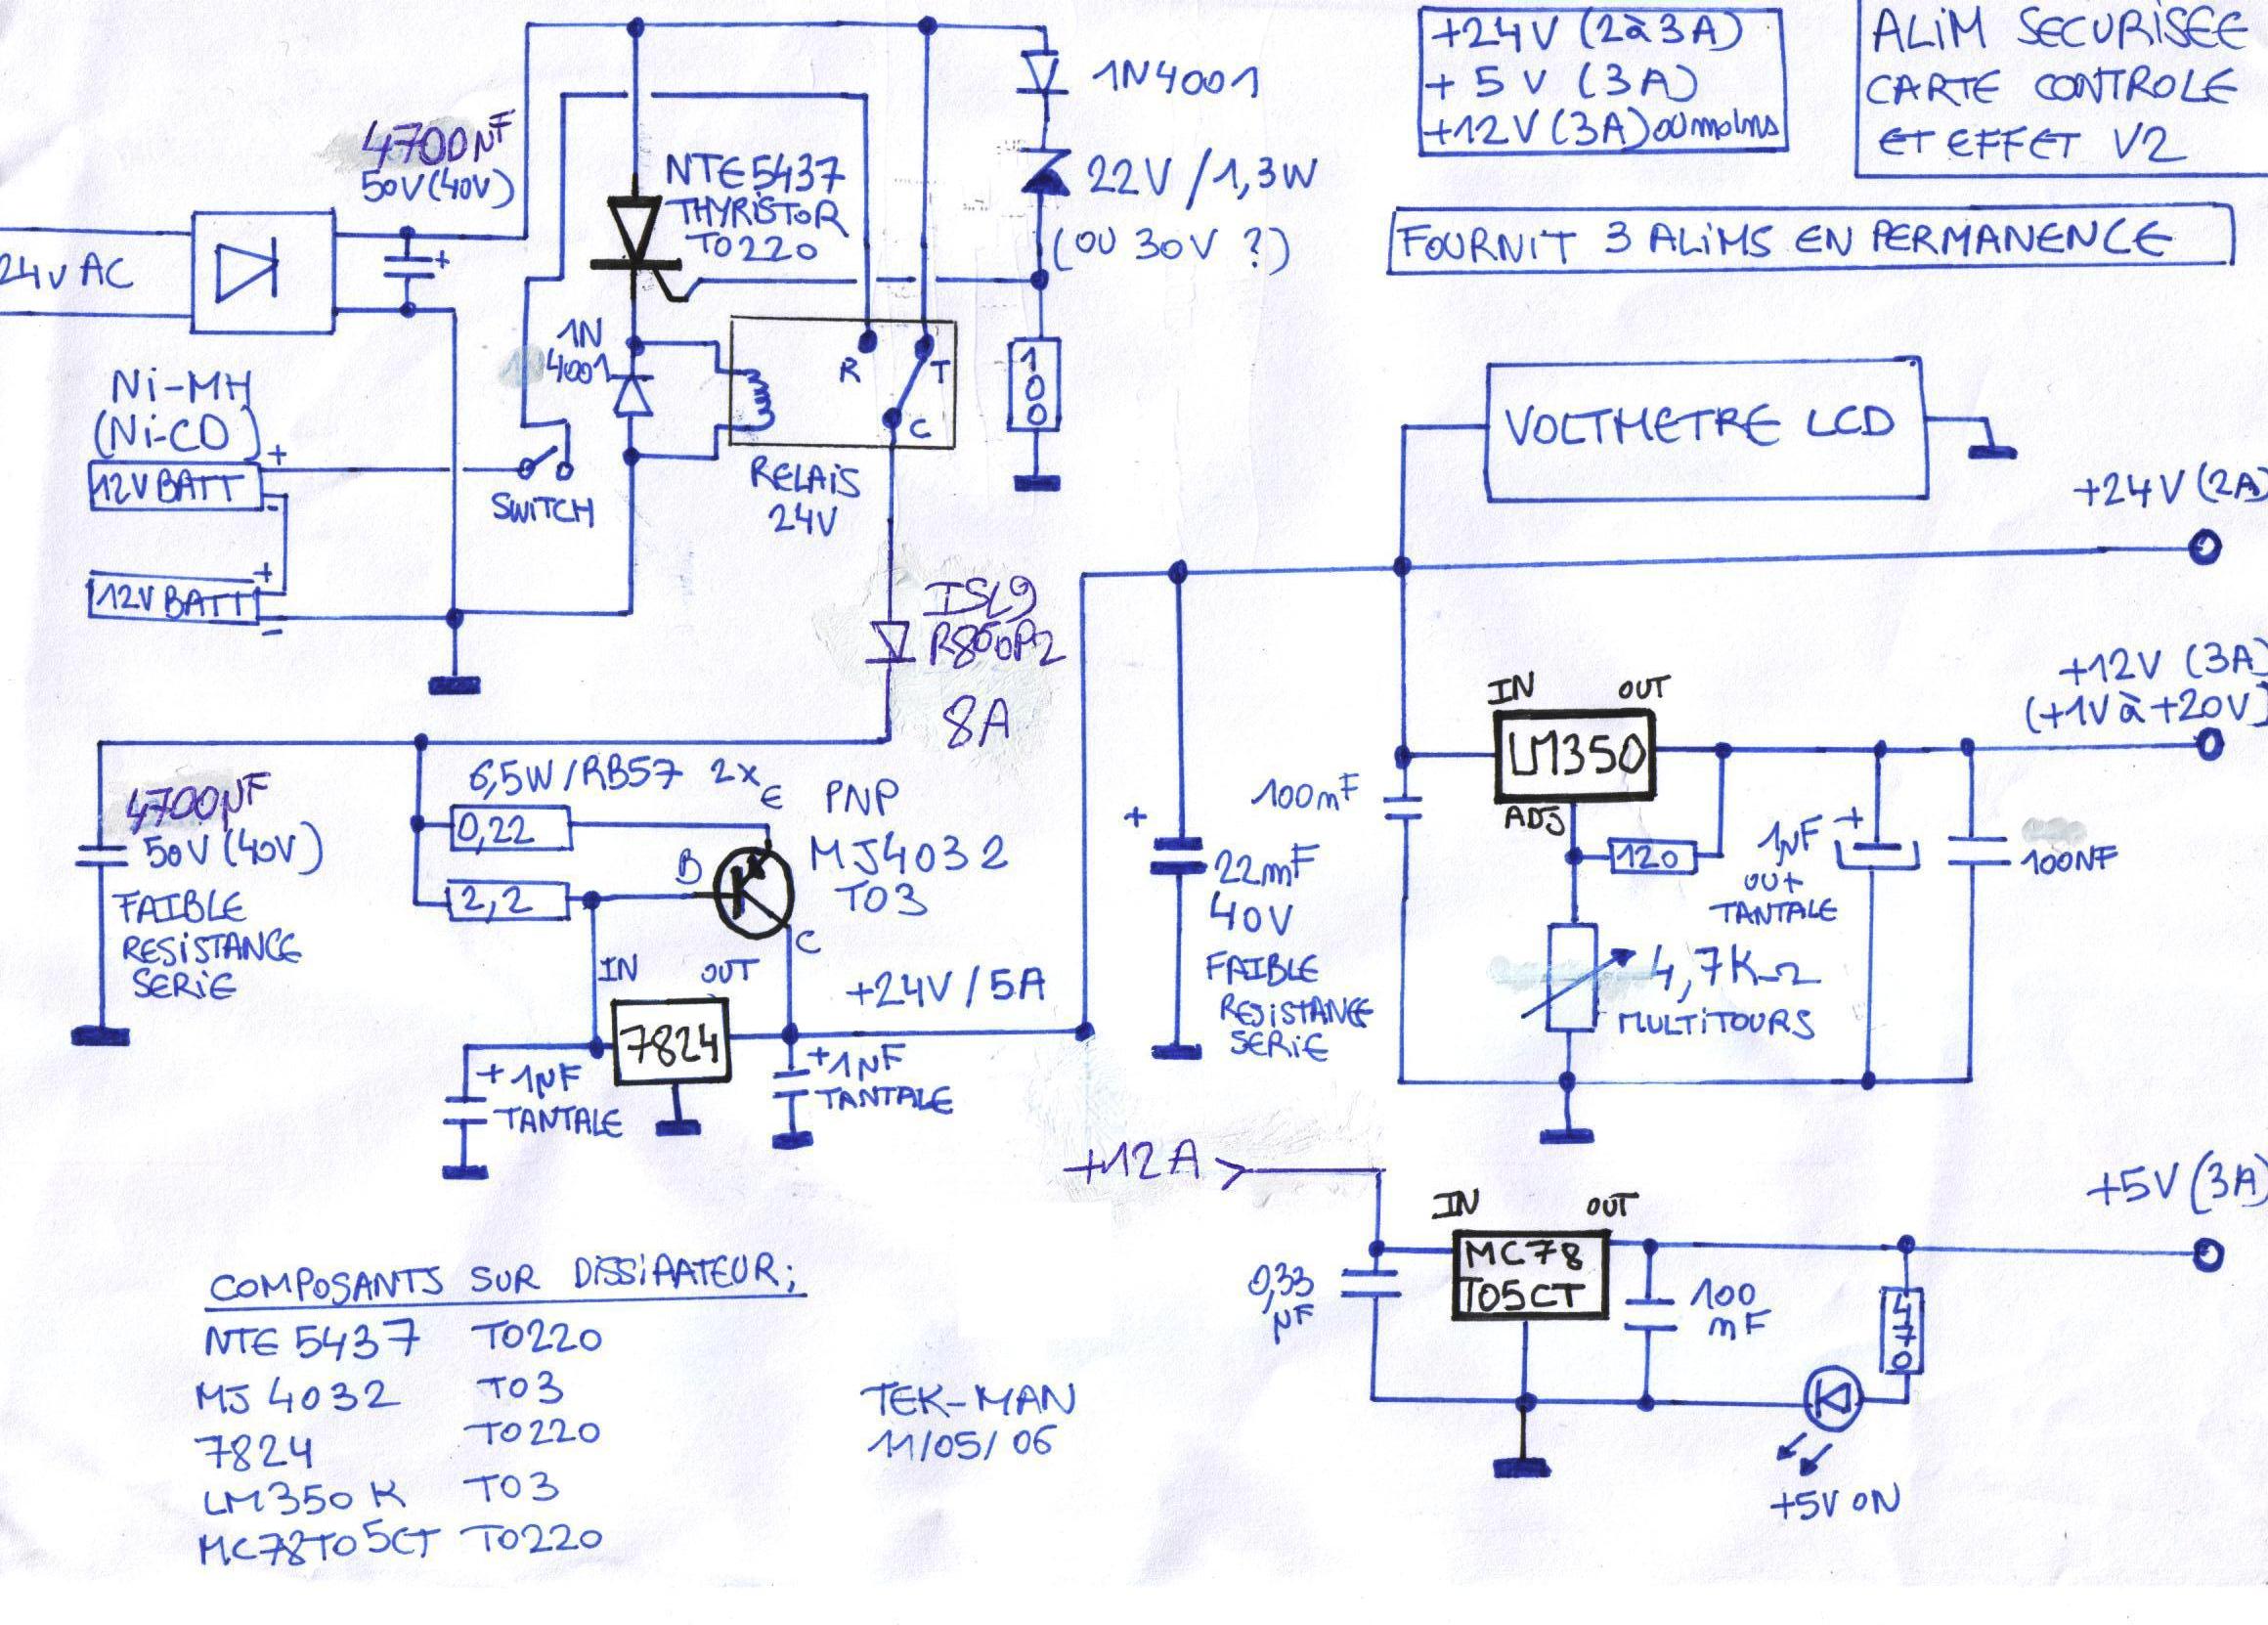 +24V (2à3A)
+5V (3A)
+12V (3A) ou moins
ALiM SECURISEE
CARTE CONTROLE
ET EFFET V2
FOURNIT 3 ALiMS EN PERMANENCE
1N4001
22V /1,3W
(OU 30V ?)
4700µF
50V (40V)
+
NTE5437
THYRISTOR
TO220
24V AC
1N
4001
R
T
C
100
Ni-MH
(Ni-CD)
+
12V BATT
-
+
12V BATT
-
SWITCH
RELAIS
24V
VOLTMETRE LCD
+24V (2A)
ISL9
R860P2
8A
+12V (3A)
(+1V à +20V)
IN
OUT
LM350
ADJ
100mF
120
1µF
+
OUT
TANTALE
100NF
4,7KΩ
MULTITOURS
+
22mF
40V
FAIBLE
RESISTANCE
SERIE
4700µF
50V (40V)
FAIBLE
RESISTANCE
SERIE
6,5W/RB57 2x
0,22
2,2
E
B
C
PNP
MJ4032
TO3
IN
OUT
7824
+24V/5A
+1µF
TANTALE
+1µF
TANTALE
+12A >
IN
OUT
MC78
T05CT
0,33
µF
100
mF
470
+5V (3A)
+5V ON
COMPOSANTS SUR DISSIPATEUR;
NTE 5437 TO220
MJ 4032 TO3
7824 TO220
LM350 K TO3
MC78T05CT TO220
TEK-MAN
11/05/06